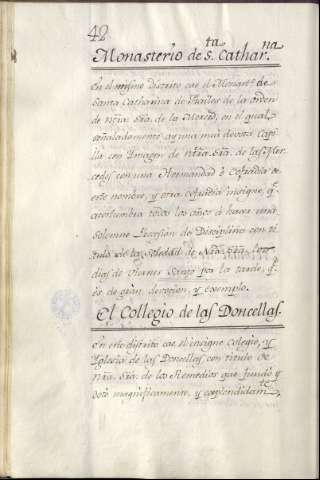 42
Monasterio de S.ta Cathar.na
En el mismo Distrito cae el Monast.o de
Santa Catharina de frailes de la orden
de Ntra. Sra. de la Merced, en el qual
señaladamente ay una mui devota Capi
lla con Imagen de Ntra. Sra. de las Mer
cedes con una Hermandad ò Cofradia de
este nombre, y otra cofradia insigne, q.e
acostumbra todos los años à hacer una
solenne Procesion de Disciplina con ti
tulo de la Soledad de Ntra. Sra. los
dias de Viernes Santo por la tarde, q.e
és de gran devocion, y exemplo.
El Collegio de las Doncellas.
En este distrito cae el insigne Colegio, y
Yglesia de las Doncellas con titulo de
Ntra. Sra. de los Remedios que fundó y
dotó magnificamente, y esplendidam.te